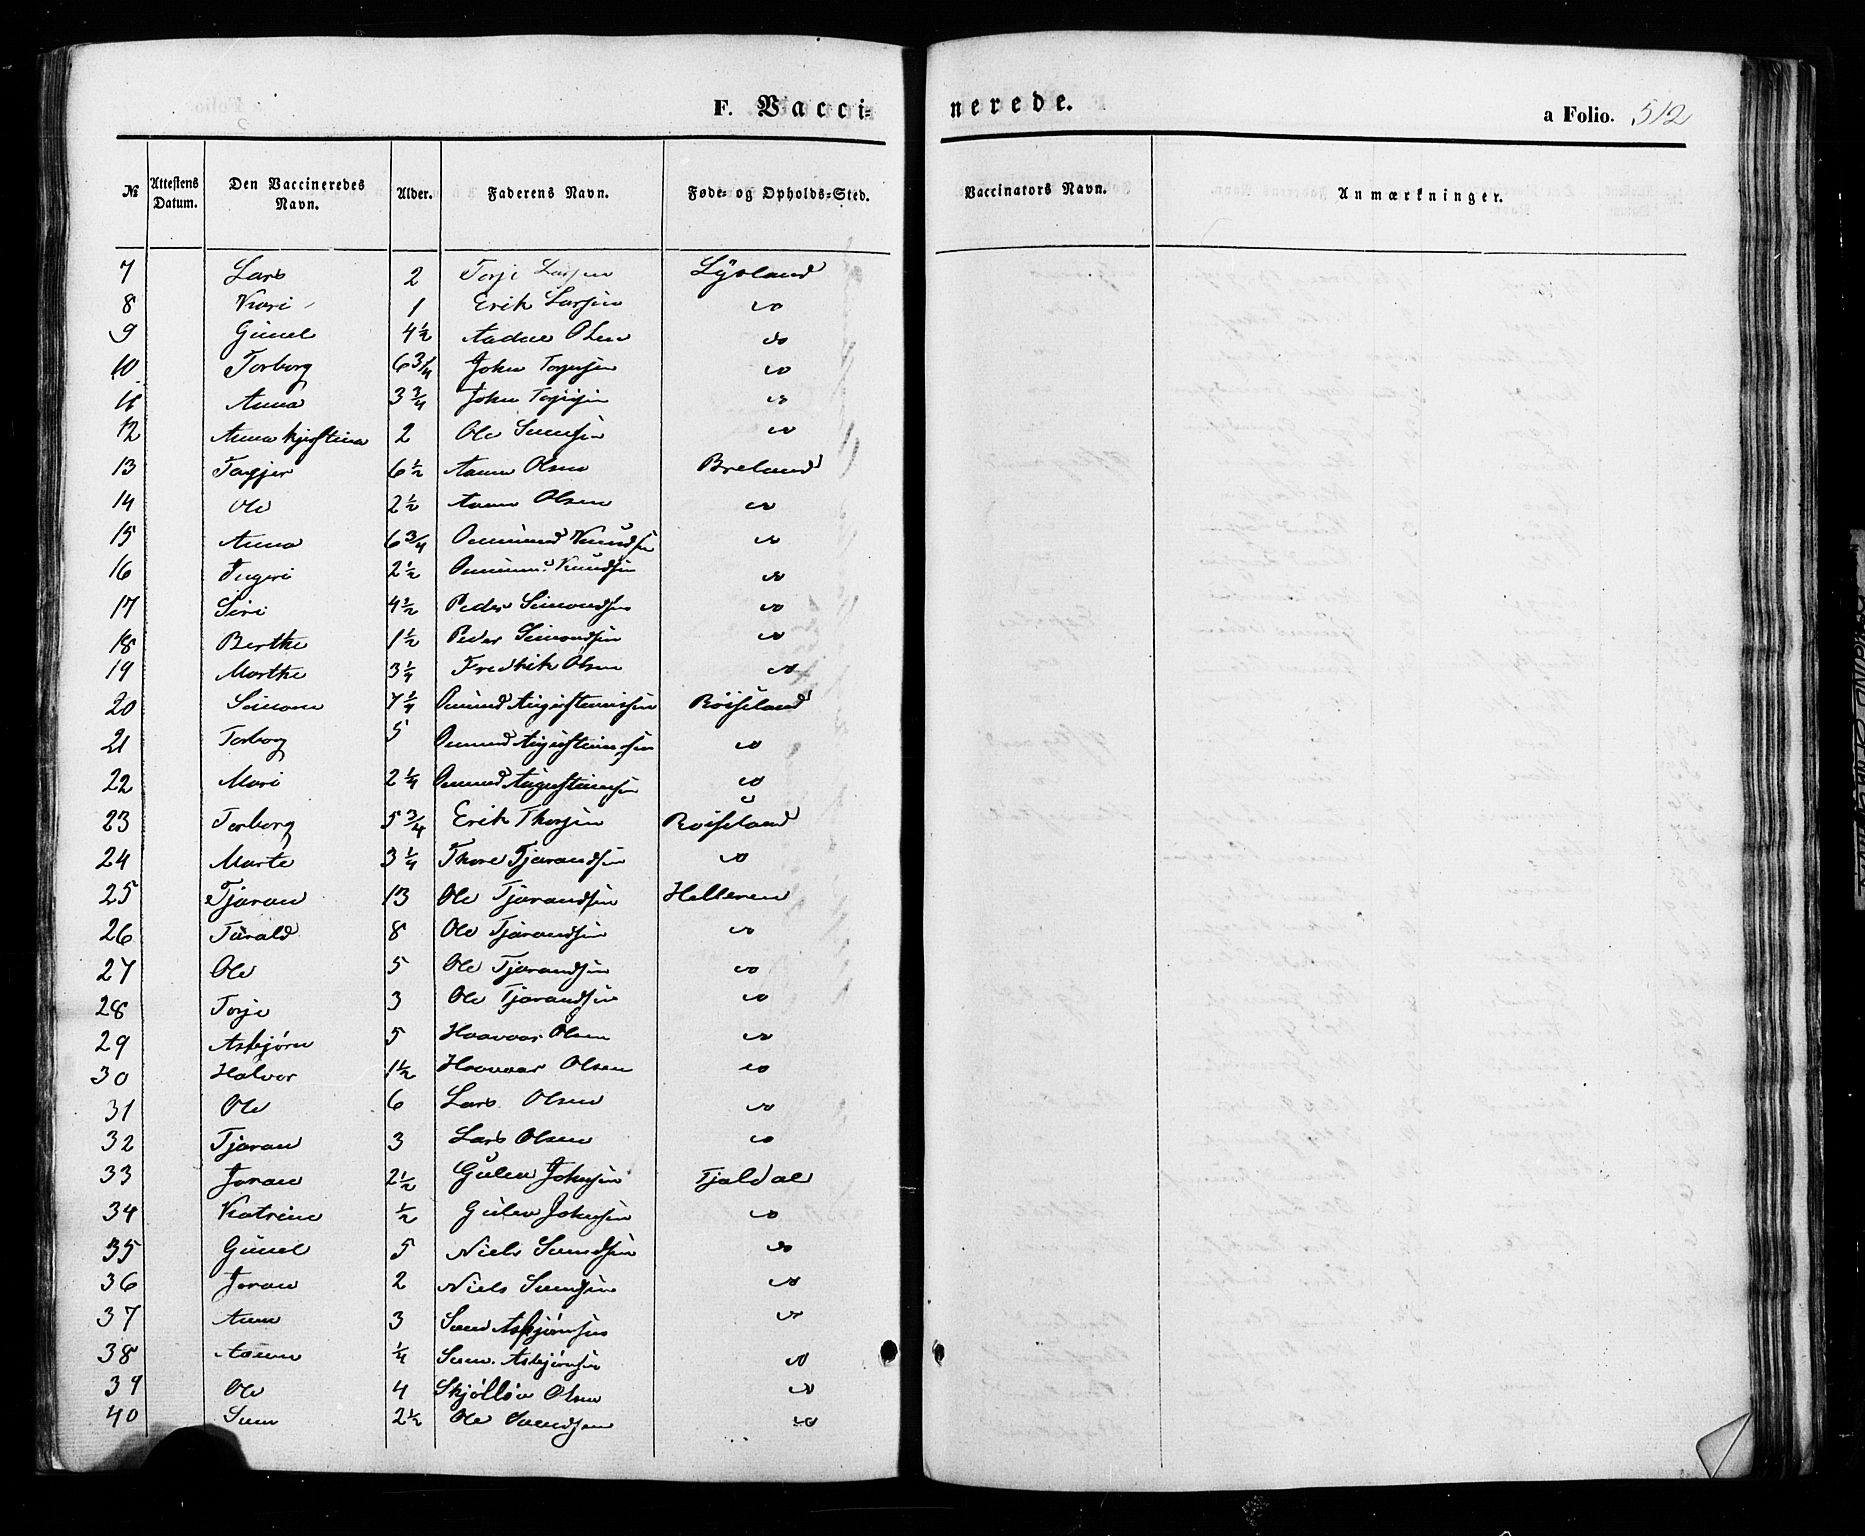 F. Vacci- nerede. a Folio. 512
№ Attestens Datum. Den Vaccineredes Navn. Alder. Faderens Navn. Føde- og Opholds-Sted. Vaccinators Navn. Anmærkninger.
7 Lars 2 Torje Larsen Lysland
8 Kari 1 Erik Larsen do
9 Gunel 4½ Aadne Olsen do
10 Torborg 6¾ John Torjesen do
11 Anna 3¾ John do
12 Anna Kjerstina 2 Ole do
13 Torgjer 6½ Aanen Olsen Breland
14 Ole 2½ Aanen Olsen do
15 Anna 6¾ Ommund Knudsen do
16 Ingeri 2½ Ommun. Knudsen do
17 Siri 4½ Peder Simondsen do
18 Berthe 1½ Peder Simondsen do
19 Marthe 3¼ Fredrik Olsen do
20 Simon 7¼ Omund Augustinussen Røiseland
21 Torborg 5 Omund Augustinussen do
22 Mari 2¼ Omund Augustinussen do
23 Torborg 5¾ Erik Thorsen Roiseland
24 Marte 3¼ Thore Tjarandsen do
25 Tjøran 13 Ole Tjarandsen Helleren
26 Tarald 8 Ole Tjarandsen do
27 Ole 5 Ole Tjarandsen do
28 Torje 3 Ole Tjarandsen do
29 Asbjørn 5 Haavaar Olsen do
30 Halvor 1½ Haavaar Olsen do
31 Ole 6 Lars Olsen do
32 Tjøran 3 Lars Olsen do
33 Joran 2½ Gulev Johnsen Tjaldal
34 Katrine ½ Gulev Johnsen do
35 Gunel 5 Niels Svendsen do
36 Joran 2 Niels Svendsen do
37 3 Svend Asbjørnsen do
38 Aanen ¼ Sven. Asbjørnsen do
39 Ole 4 Skjøllov Olsen do
40 Sven 2½ Ole Svendsen do